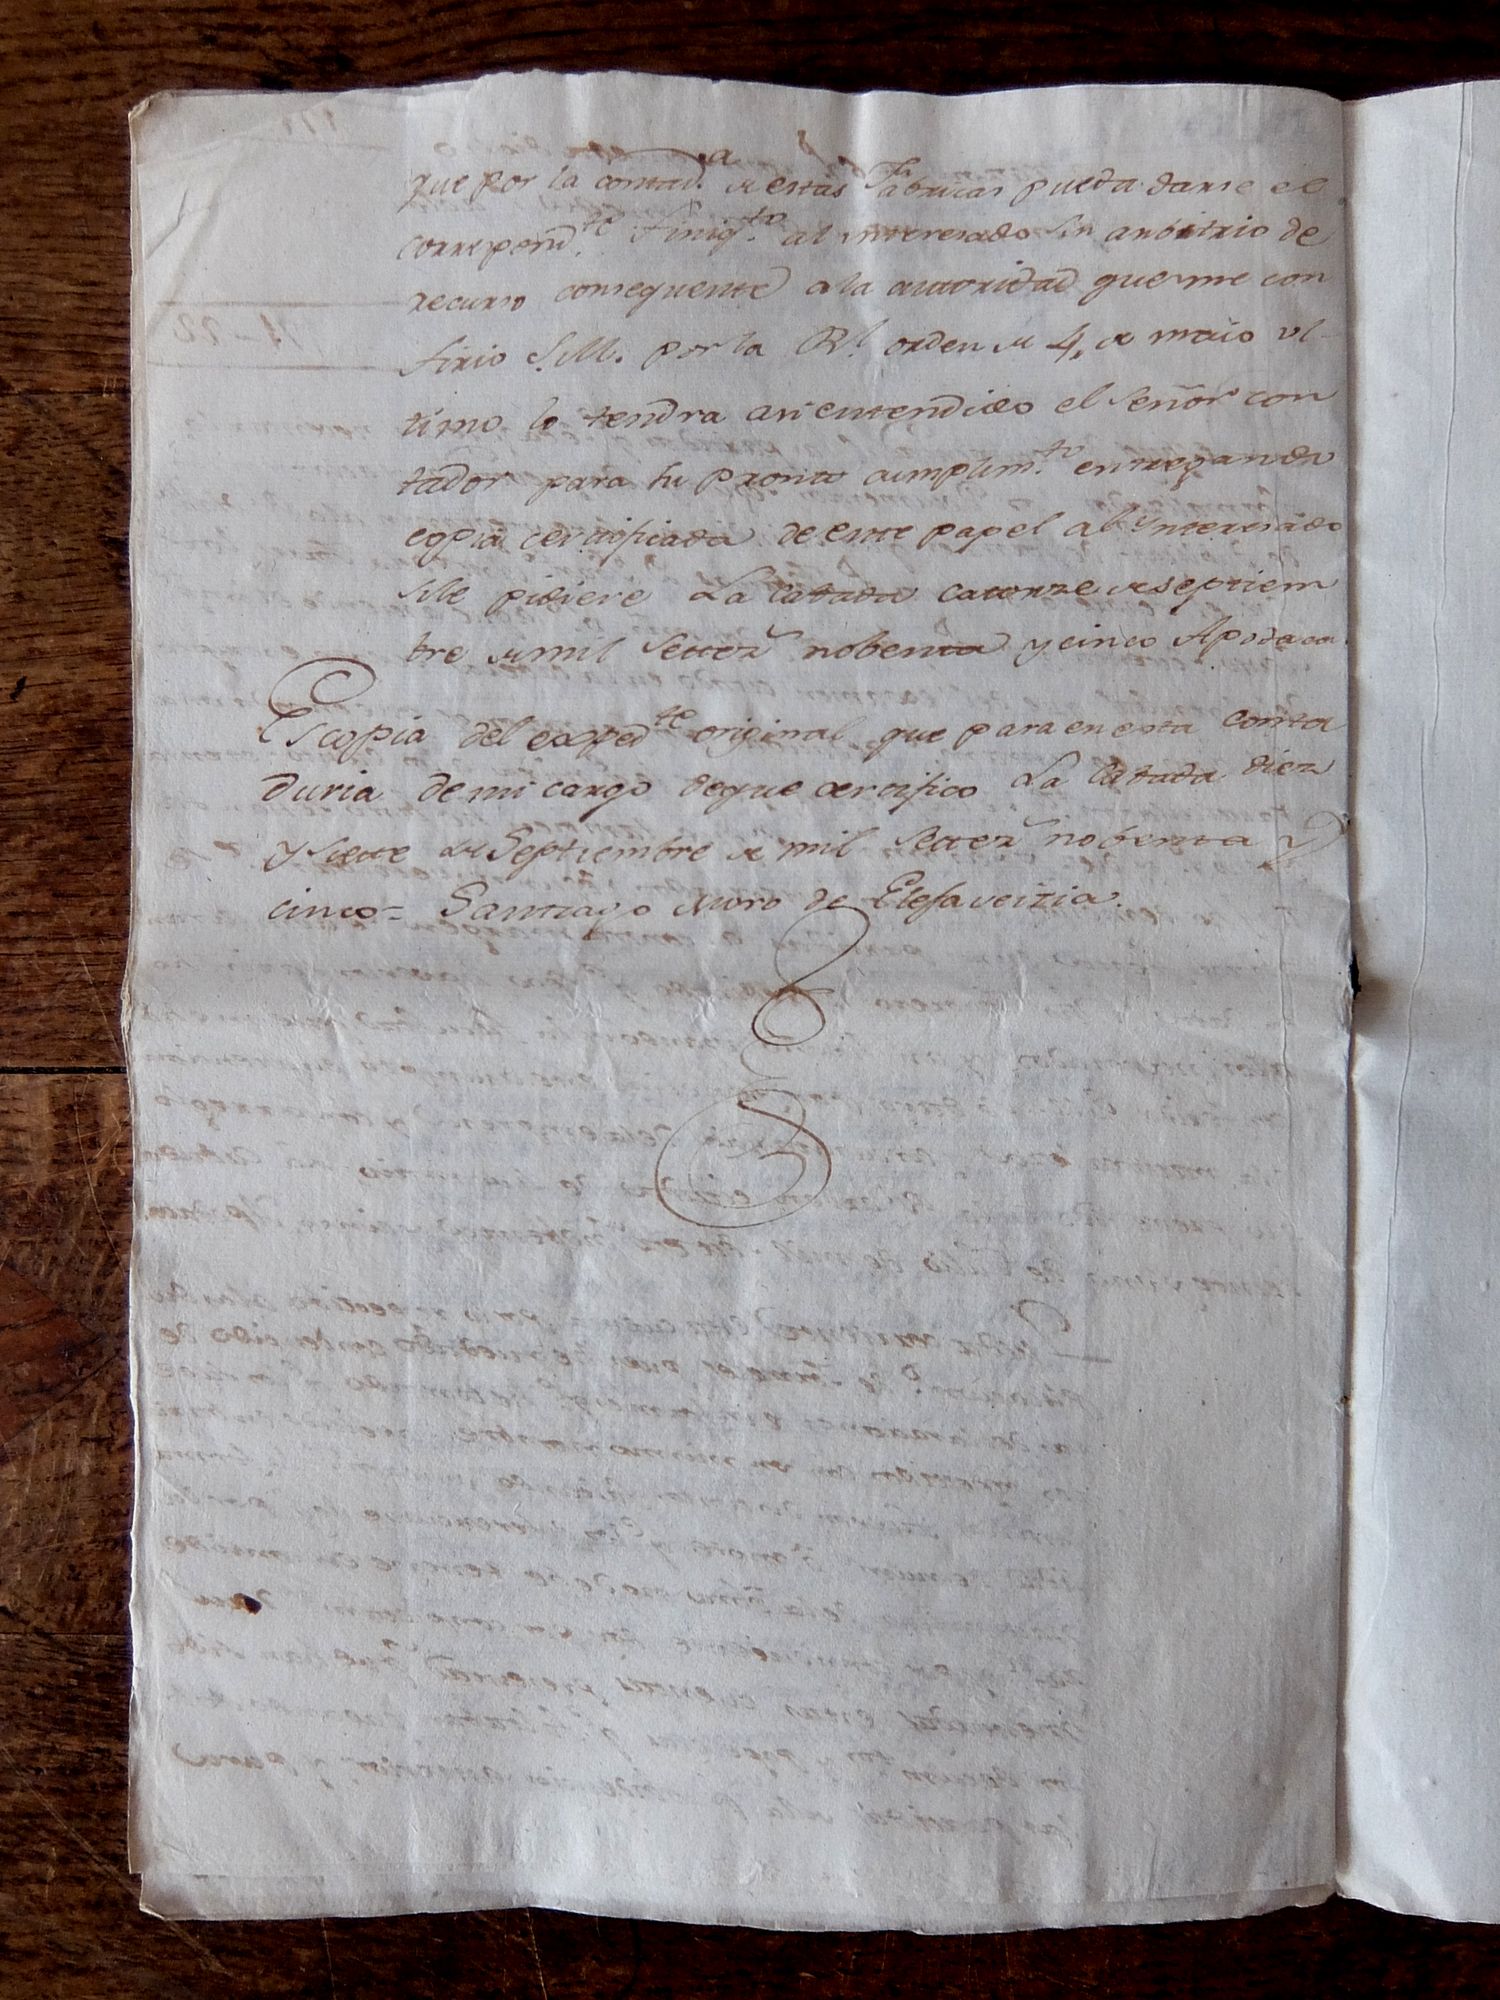 que por la contad.a de estas Fabricas pueda darse el
correpond.te finiq.to al interesado sin arbitrio de
recurso consequente a la autoridad que me con
firio S.M. por la Rl. orden de 4, de maio ul-
timo lo tendra asi entendido el Señor con
tador para su pronto cumplim.to entregando
copia certificada de este papel al Ynteresado
si le pidiere La Cabada catorze de septiem
bre de mil setez.s nobenta y cinco Apodaca
Es copia del exped.te original que para en esta conta
duria de mi cargo de que certifico La Cabada diez
y siete de Septiembre de mil setez.s nobenta y
cinco = Santiago Moro de Elejaveitia.